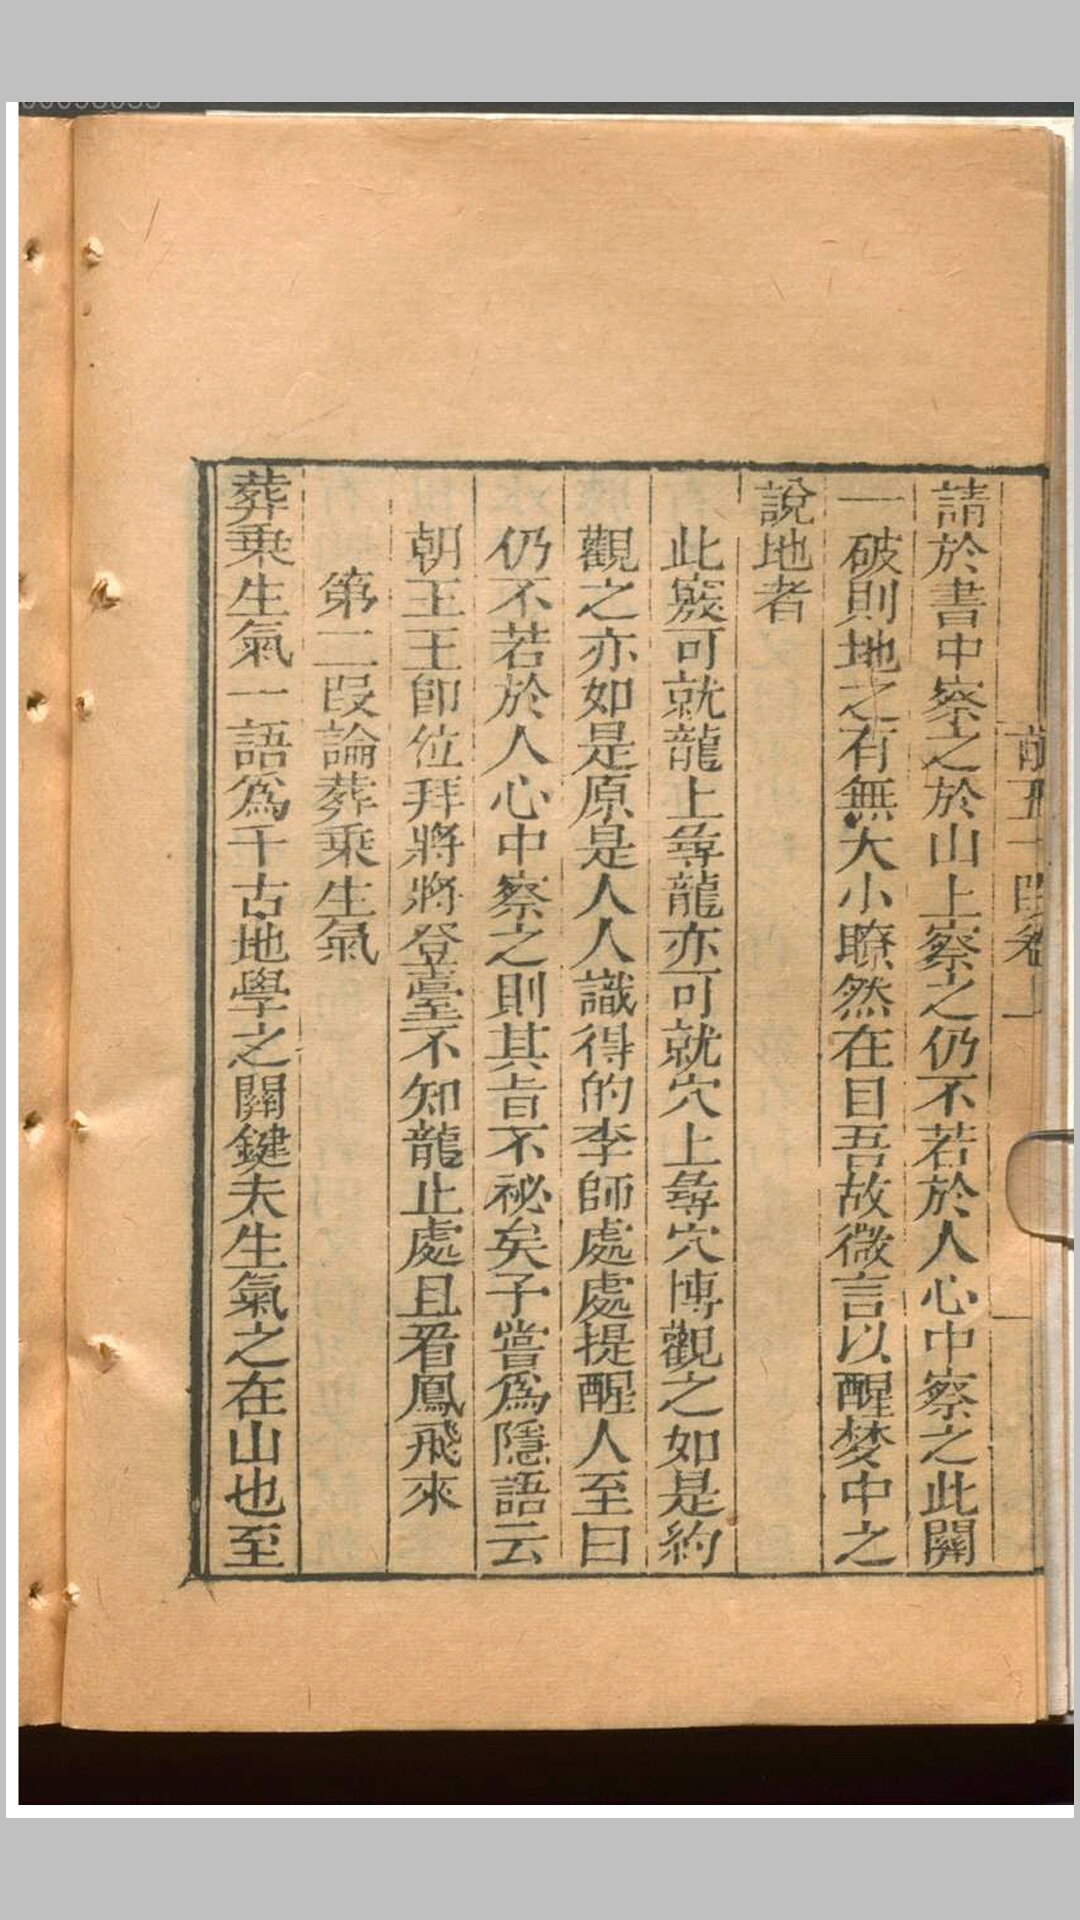 請於書中察之於山上察之仍不若於人心中察之此關
一破則地之有無大小瞭然在目吾故微言以醒梦中之
說地者
此竅可就龍上尋龍亦可就穴上尋穴博觀之如是約
觀之亦如是原是人人識得的李師處處提醒人至曰
仍不若於人心中察之則其旨不祕矣予嘗爲隱語云
朝王王卽位拜將將登臺不知龍止處且看鳳飛來
第二段論葬乘生氣
葬乘生氣一語爲千古地學之關鍵夫生氣之在山也至